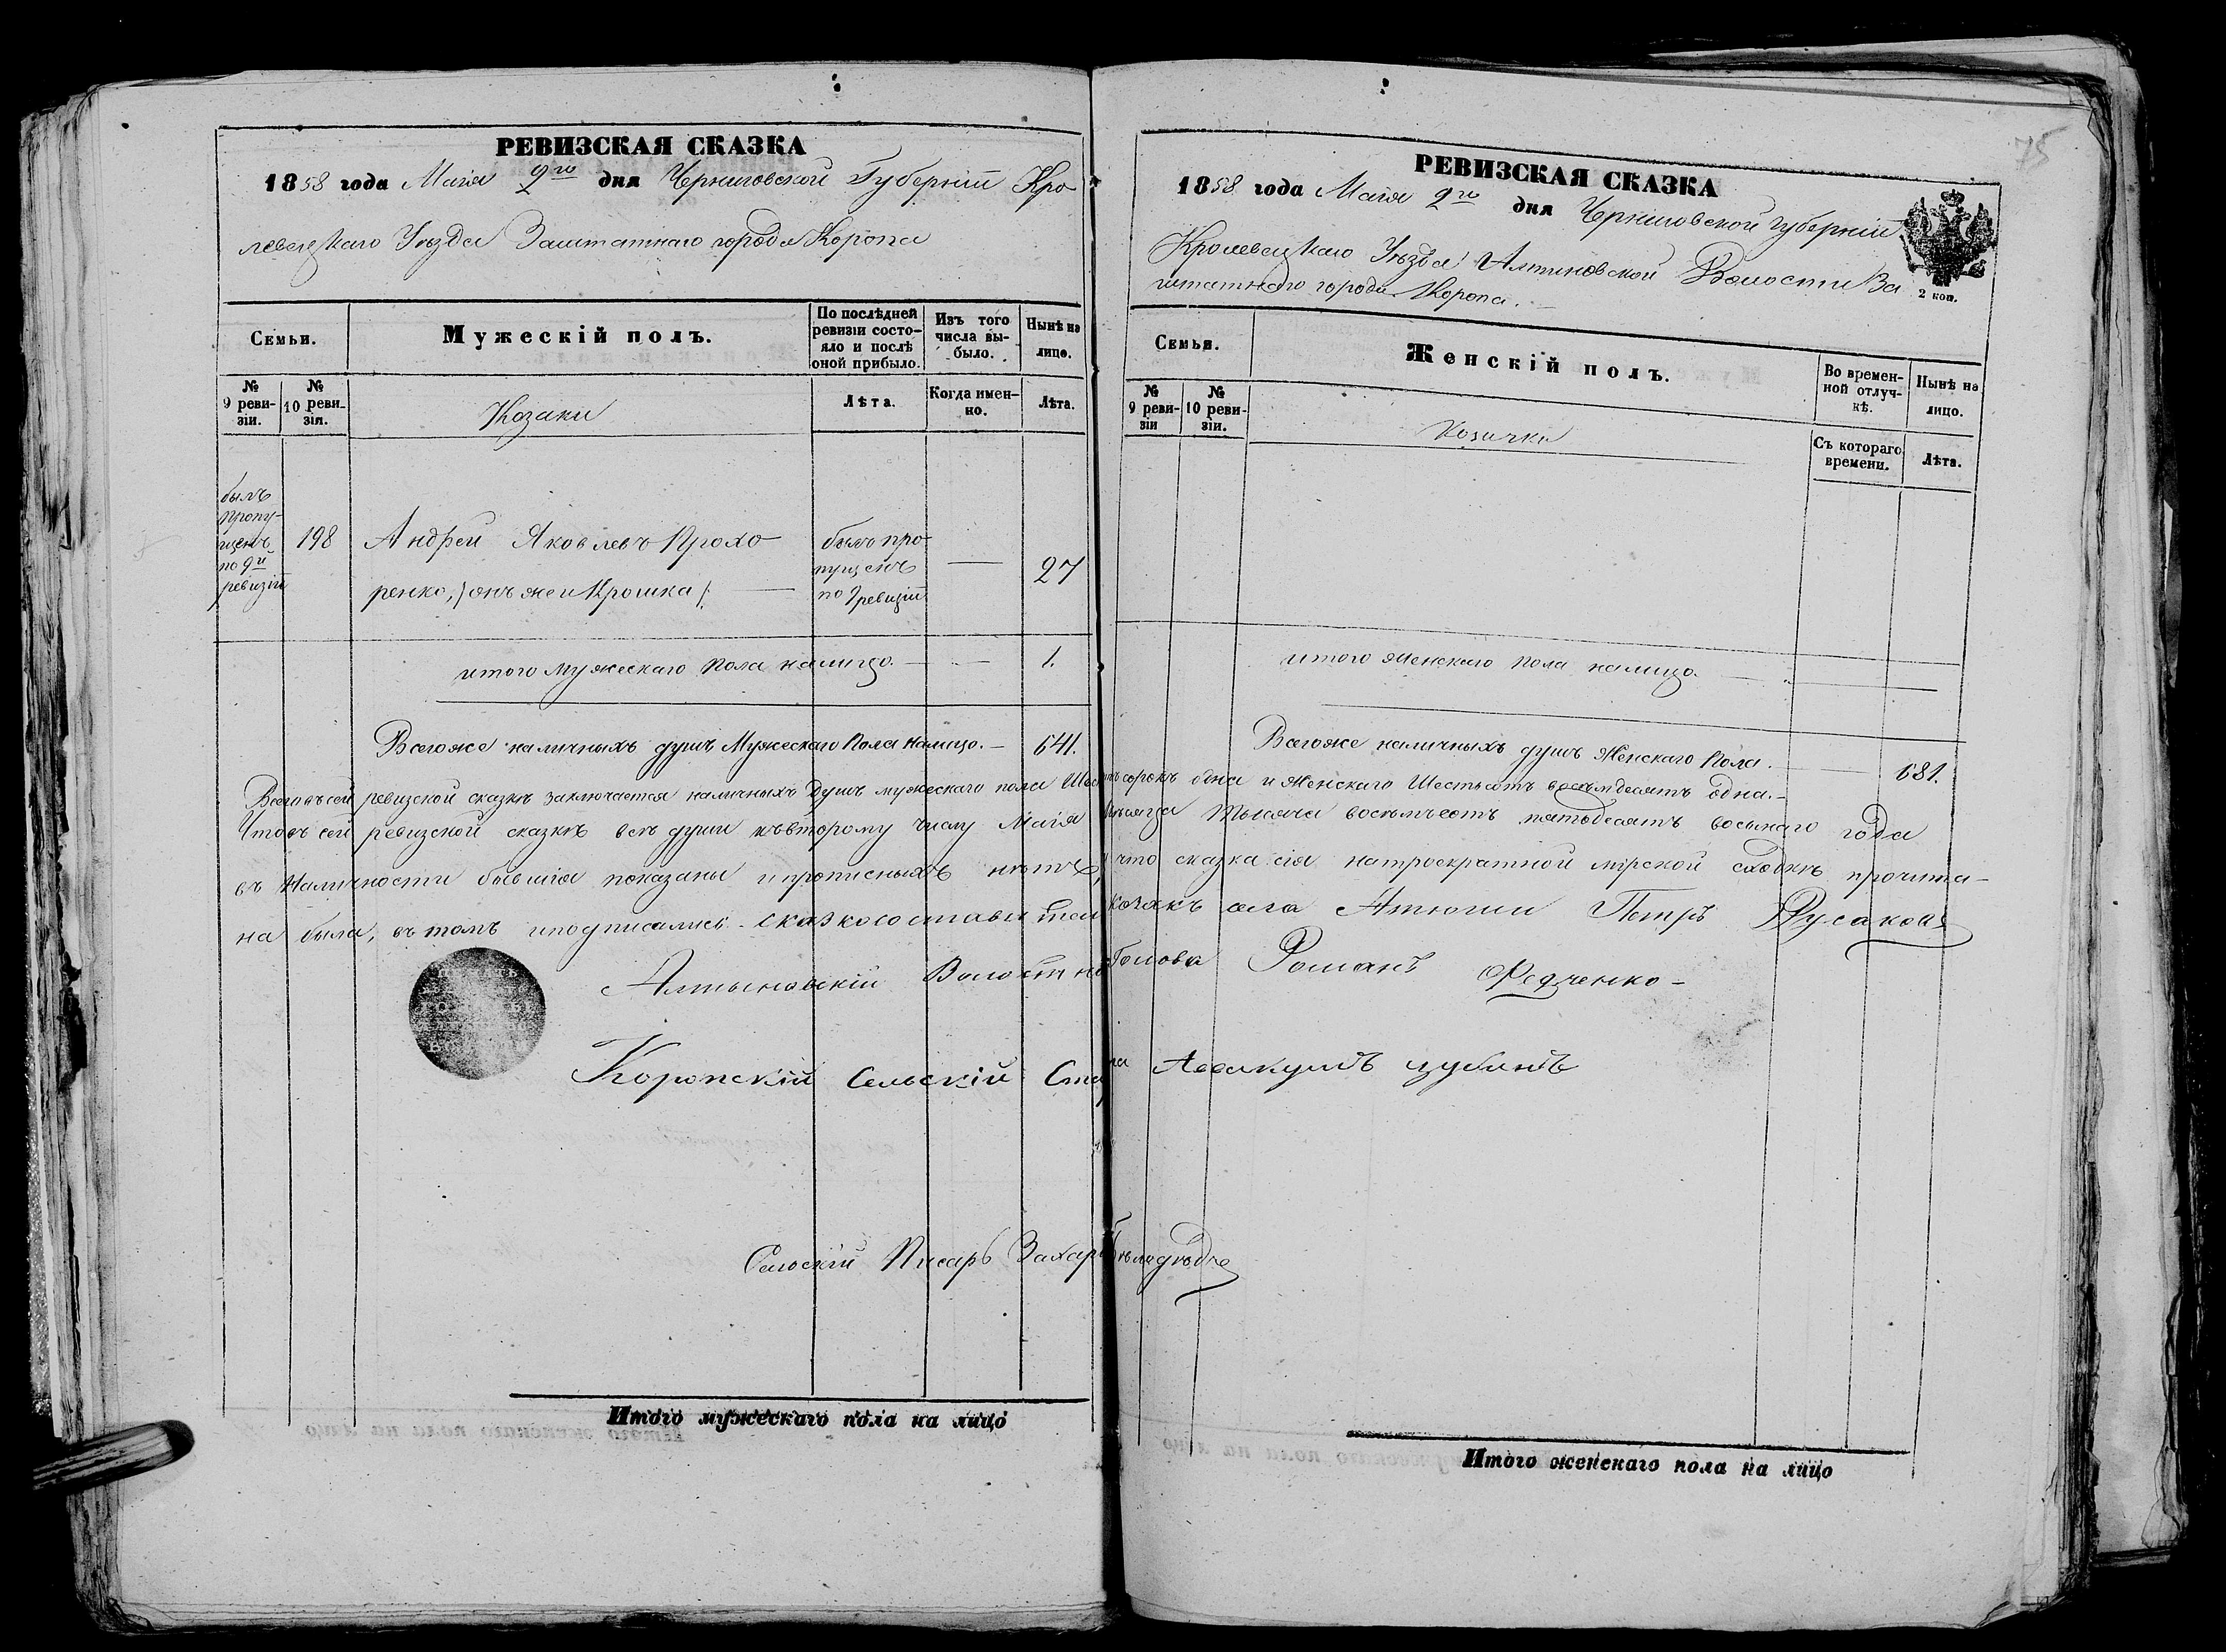 РЕВИЗСКАЯ СКАЗКА
1858 года Маія 2го дня Черниговской Губерніи Кро
левецкаго Уѣзда Заштатнаго города Коропа
Семьи.
Мужескій полъ.
По послѣдней ревизіи состо-
яло и послѣ
оной прибыло.
Изъ того
числа вы-
было.
Нынѣ на
лицо.
№
9 реви-
зіи.
№
10 реви-
зія.
Козаки
Лѣта.
Когда имен-
но.
Лѣта.
былъ
пропу-
щенъ
по 9й
ревизіи
198
Андрей Яковлевъ Прохо
ренко, /онъ же и Крошка/
былъ про
пущенъ
по 9 ревизіи
27
итого мужескаго пола налицо. 1.
Всегоже наличныхъ душъ Мужескаго Пола налицо. 641.
РЕВИЗСКАЯ СКАЗКА
1858 года Маія 2го дня Черниговской Губерніи
Кролевецкаго Уѣзда Алтиновской Волости За
штатнаго города Коропа.
2 коп.
75
Семьи.
Женскій полъ.
Во времен-
ной отлуч-
кѣ.
Нынѣ на
лицо.
№
9 реви-
зіи
№
10 реви-
зіи.
Козачки
Съ котораго
времени.
Лѣта.
итого Женскаго пола налицо.
Всегоже наличныхъ душъ Женскаго Пола. 681.
Всего въ сей ревизской сказкѣ заключается наличныхъ Душъ мужескаго пола Шестьсотъ сорокъ одна и Женскаго Шестьсотъ восемдесятъ одна.
Что въ сей ревизской сказкѣ всѣ души къ второму числу Маія Мѣсяца Тысяча восемьсотъ пятдесятъ восьмаго года
въ Наличности бывшія показаны и прописныхъ нѣтъ, и что сказка сія на троекратной мірской сходкѣ прочита-
на была, въ томъ и подписались. Сказкосоставитель козакъ села Атюши Петръ Русаковъ
Алтыновскій Волостно Голова Романъ Федченко
Коропскій Сельскій Ста ра Аввакумъ
Сельскій Писарь Захар
Итого мужескаго пола на лицо
Итого женскаго пола на лицо